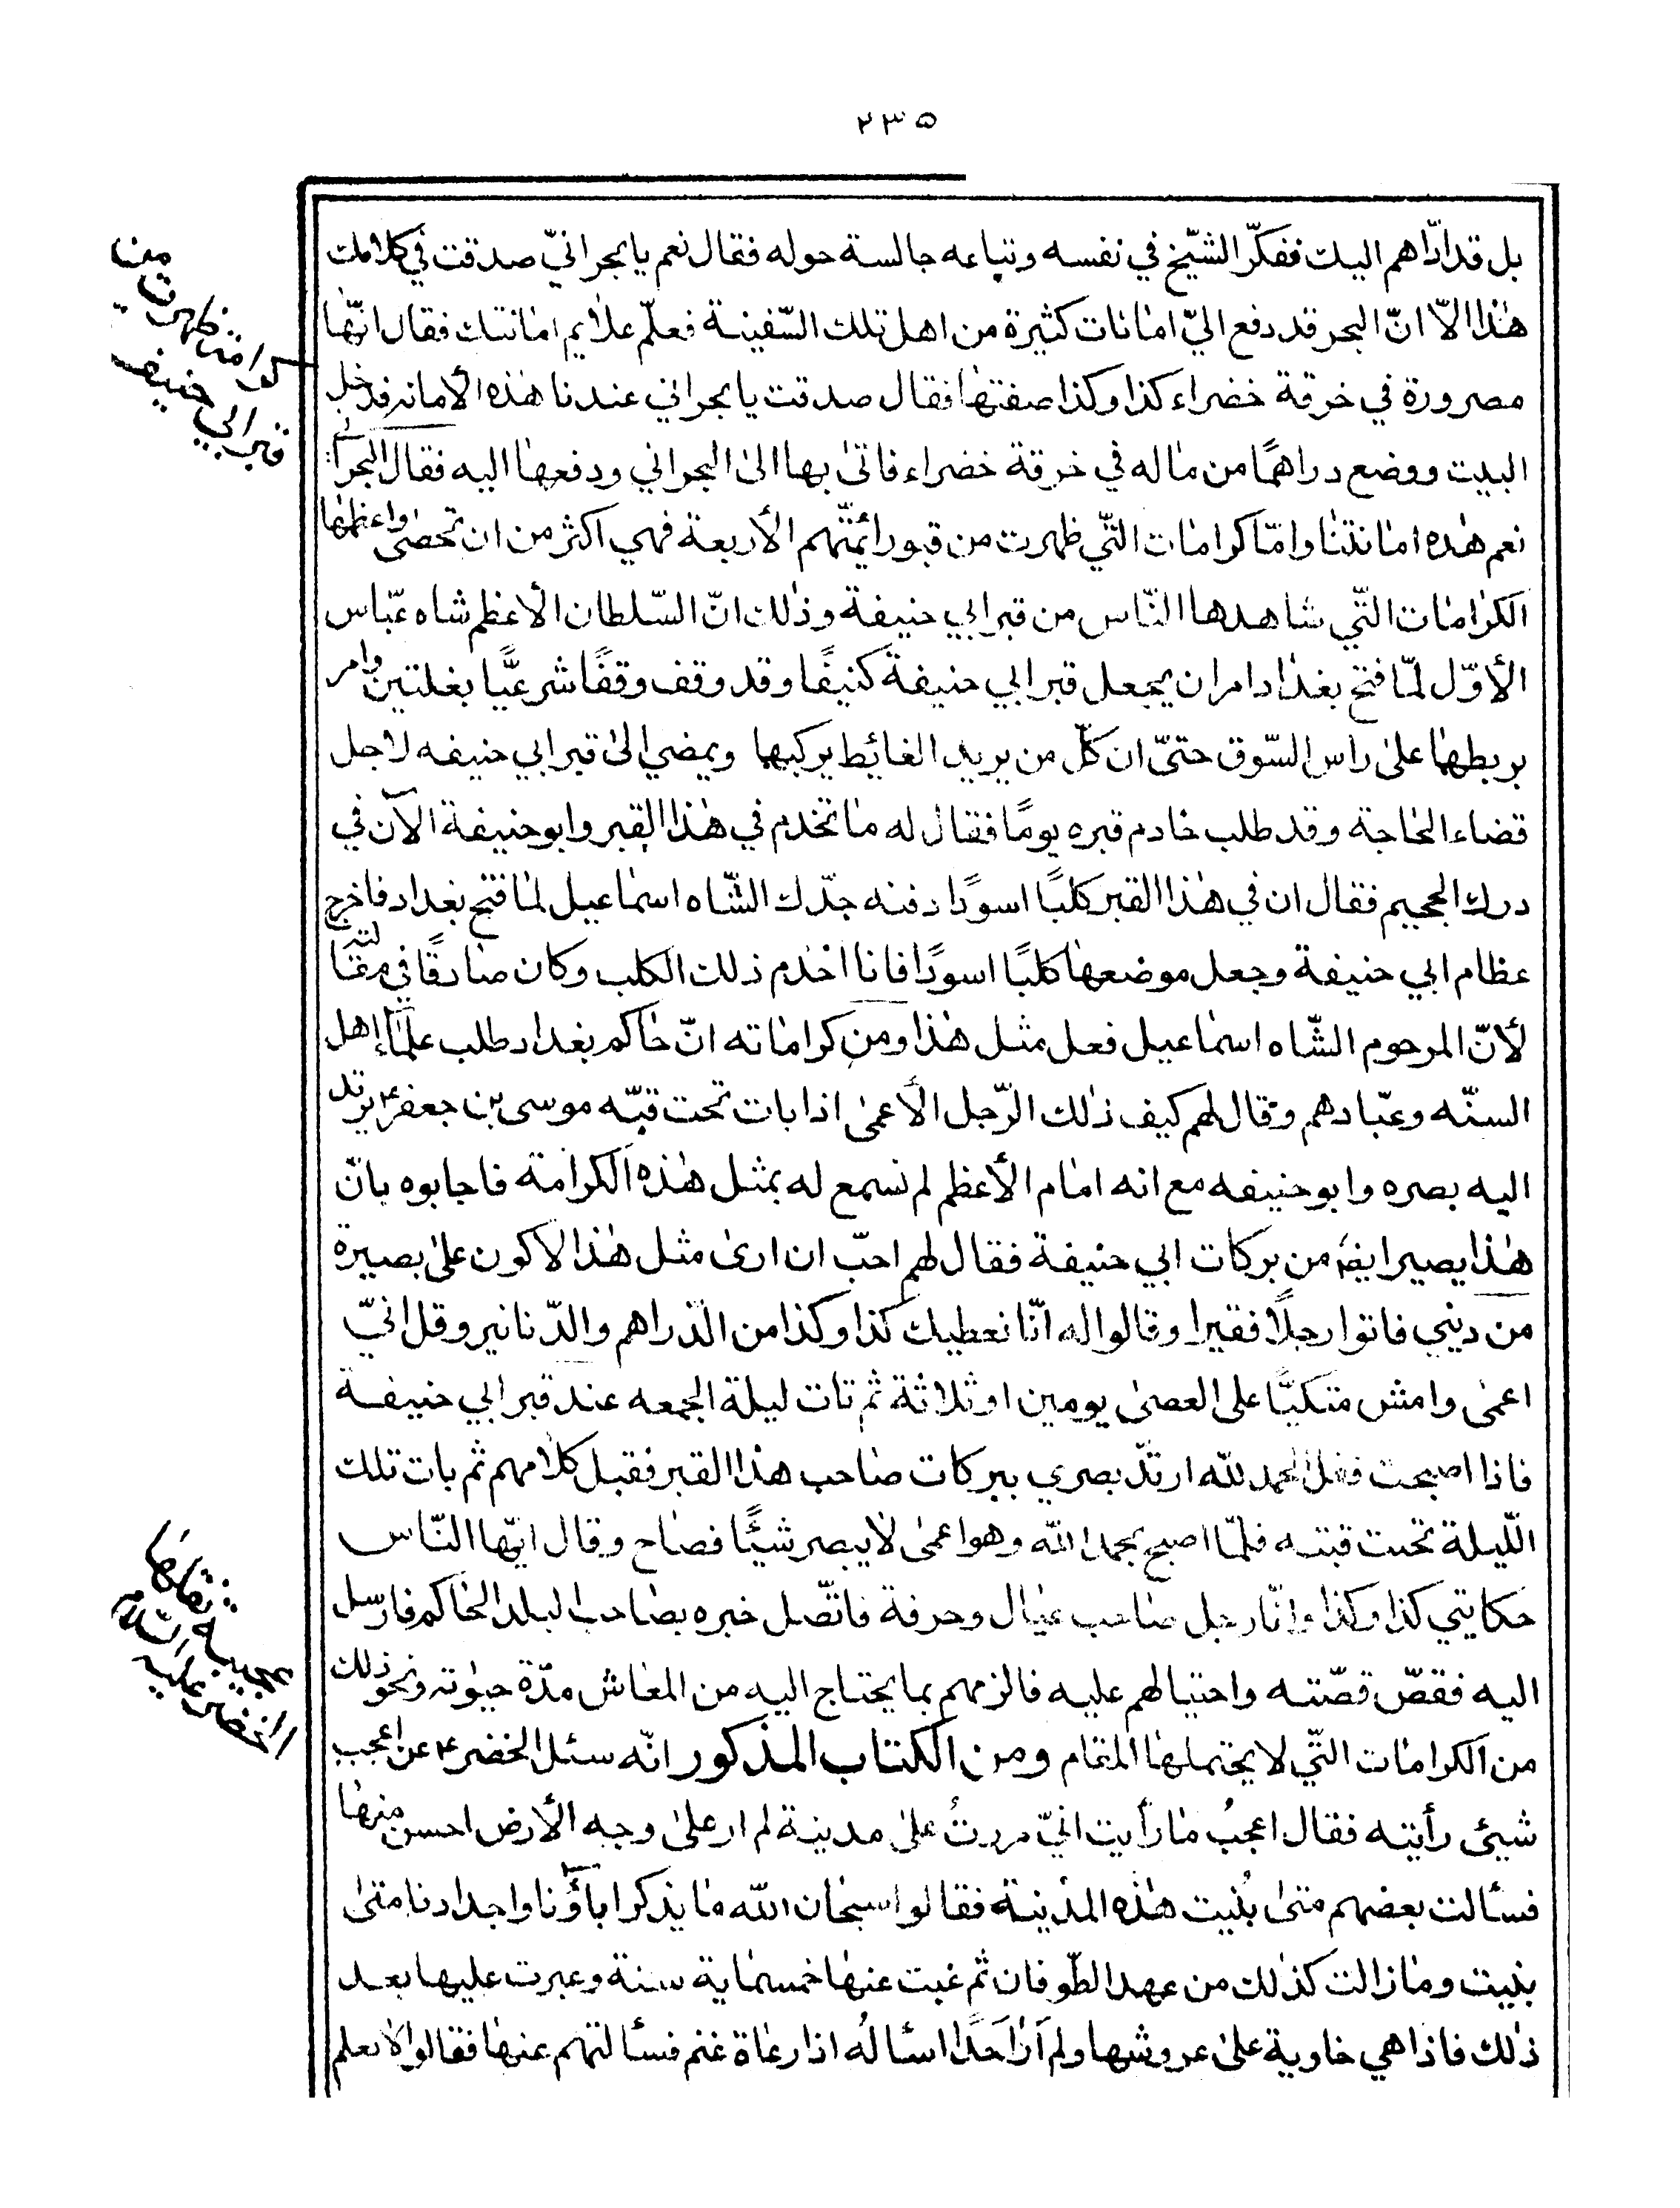 ٢٣٥
بل قد ادّاهم اليك ففكّر الشّيخ في نفسه وتباعه جالسة حوله فقال نعم يا بحرانيّ صدقت في كلامك
هذا الّا انّ البحر قد دفع اليّ امانات كثيرة من اهل تلك السّفينة فعلّم علايم امانتك فقال انّها
مصرورة في خرقة خضراء كذا وكذا صفتها فقال صدقت يا بحراني عندنا هذه الأمانه فدخل
البيت ووضع دراهمًا من ماله في خرقة خضراء فاتى بها الى البحراني ودفعها اليه فقال البحراني
نعم هذه امانتنا وامّا كرامات التّي ظهرت من قبور ائمّتهم الأربعة فهي اكثر من ان تحصى واعظمها
الكرامات التّي شاهدها النّاس من قبر ابي حنيفة وذلك انّ السّلطان الأعظم شاه عبّاس
الأوّل لمّا فتح بغداد امر ان يجعل قبر ابي حنيفة كنيفًا وقد وقف وقفًا شرعيًّا بغلتين وامر
بربطهما على راس السّوق حتىّ ان كلّ من يريد الغائط يركبها ويمضي الى قبر ابي حنيفه لاجل
قضاء الحاجة وقد طلب خادم قبره يومًا فقال له ما تخدم في هذا القبر وابو حنيفة الآن في
درك الجحيم فقال ان في هذا القبر كلبًا اسودًا دفنه جدّك الشّاه اسماعيل لمّا فتح بغداد فاخرج
عظام ابي حنيفة وجعل موضعها كلبًا اسودًا فانا اخدم ذلك الكلب وكان صادقًا في مقالته
لأنّ المرحوم الشّاه اسماعيل فعل مثل هذا ومن كراماته انّ حاكم بغداد طلب علماء اهل
السنّه وعبّادهم وقال لهم كيف ذلك الرّجل الأعمى اذا بات تحت قبّه موسى بن جعفر ع يرتد
اليه بصره وابو حنيفه مع انه امام الأعظم لم نسمع له بمثل هذه الكرامة فاجابوه بانّ
هذا يصير ايضا من بركات ابي حنيفة فقال لهم احبّ ان ارى مثل هذا لاكون على بصيرة
من ديني فاتوا رجلًا فقيرا وقالوا له انّا نعطيك كذا وكذا من الدّراهم والدّنانير وقل انيّ
اعمى وامش متكيًّا على العصى يومين او ثلاثة ثم تات ليلة الجمعه عند قبر ابي حنيفة
فاذا اصبحت فقل الحمد لله ارتدّ بصري ببركات صاحب هذا القبر فقبل كلامهم ثم بات تلك
اللّيلة تحت قبته فلمّا اصبح بحمد الله وهو اعمى لا يبصر شيئًا فصاح وقال ايّها النّاس
حكايتي كذا وكذا وانا رجل صاحب عيال وحرفة فاتّصل خبره بصاحب البلد الحاكم فارسل
اليه فقصّ قصّته واحتيالهم عليه فالزمهم بما يحتاج اليه من المعاش مدّة حيوته ونحو ذلك
من الكرامات التّي لا يحتملها المقام ومن الكتاب المذكور انّه سئل الخضر ع عن اعجب
شيئ رأيته فقال اعجبُ ما رأيت انيّ مررتُ على مدينة لم ار على وجه الأرض احسن منها
فسألت بعضهم متى بُنيت هذه المدينة فقالوا سبحان الله ما يذكر اباؤنا واجدادنا متى
بنيت وما زالت كذلك من عهد الطّوفان ثم غبت عنها خمسماية سنة وعبرت عليها بعد
ذلك فاذا هي خاوية على عروشها ولم أرَ احدًا اسأله اذا رعاة غنم فسألتهم عنها فقالوا لا نعلم
كرامة ظهرت من
قبر ابي حنيفه
عجيبة نقلها
الخضر عليه السّلام